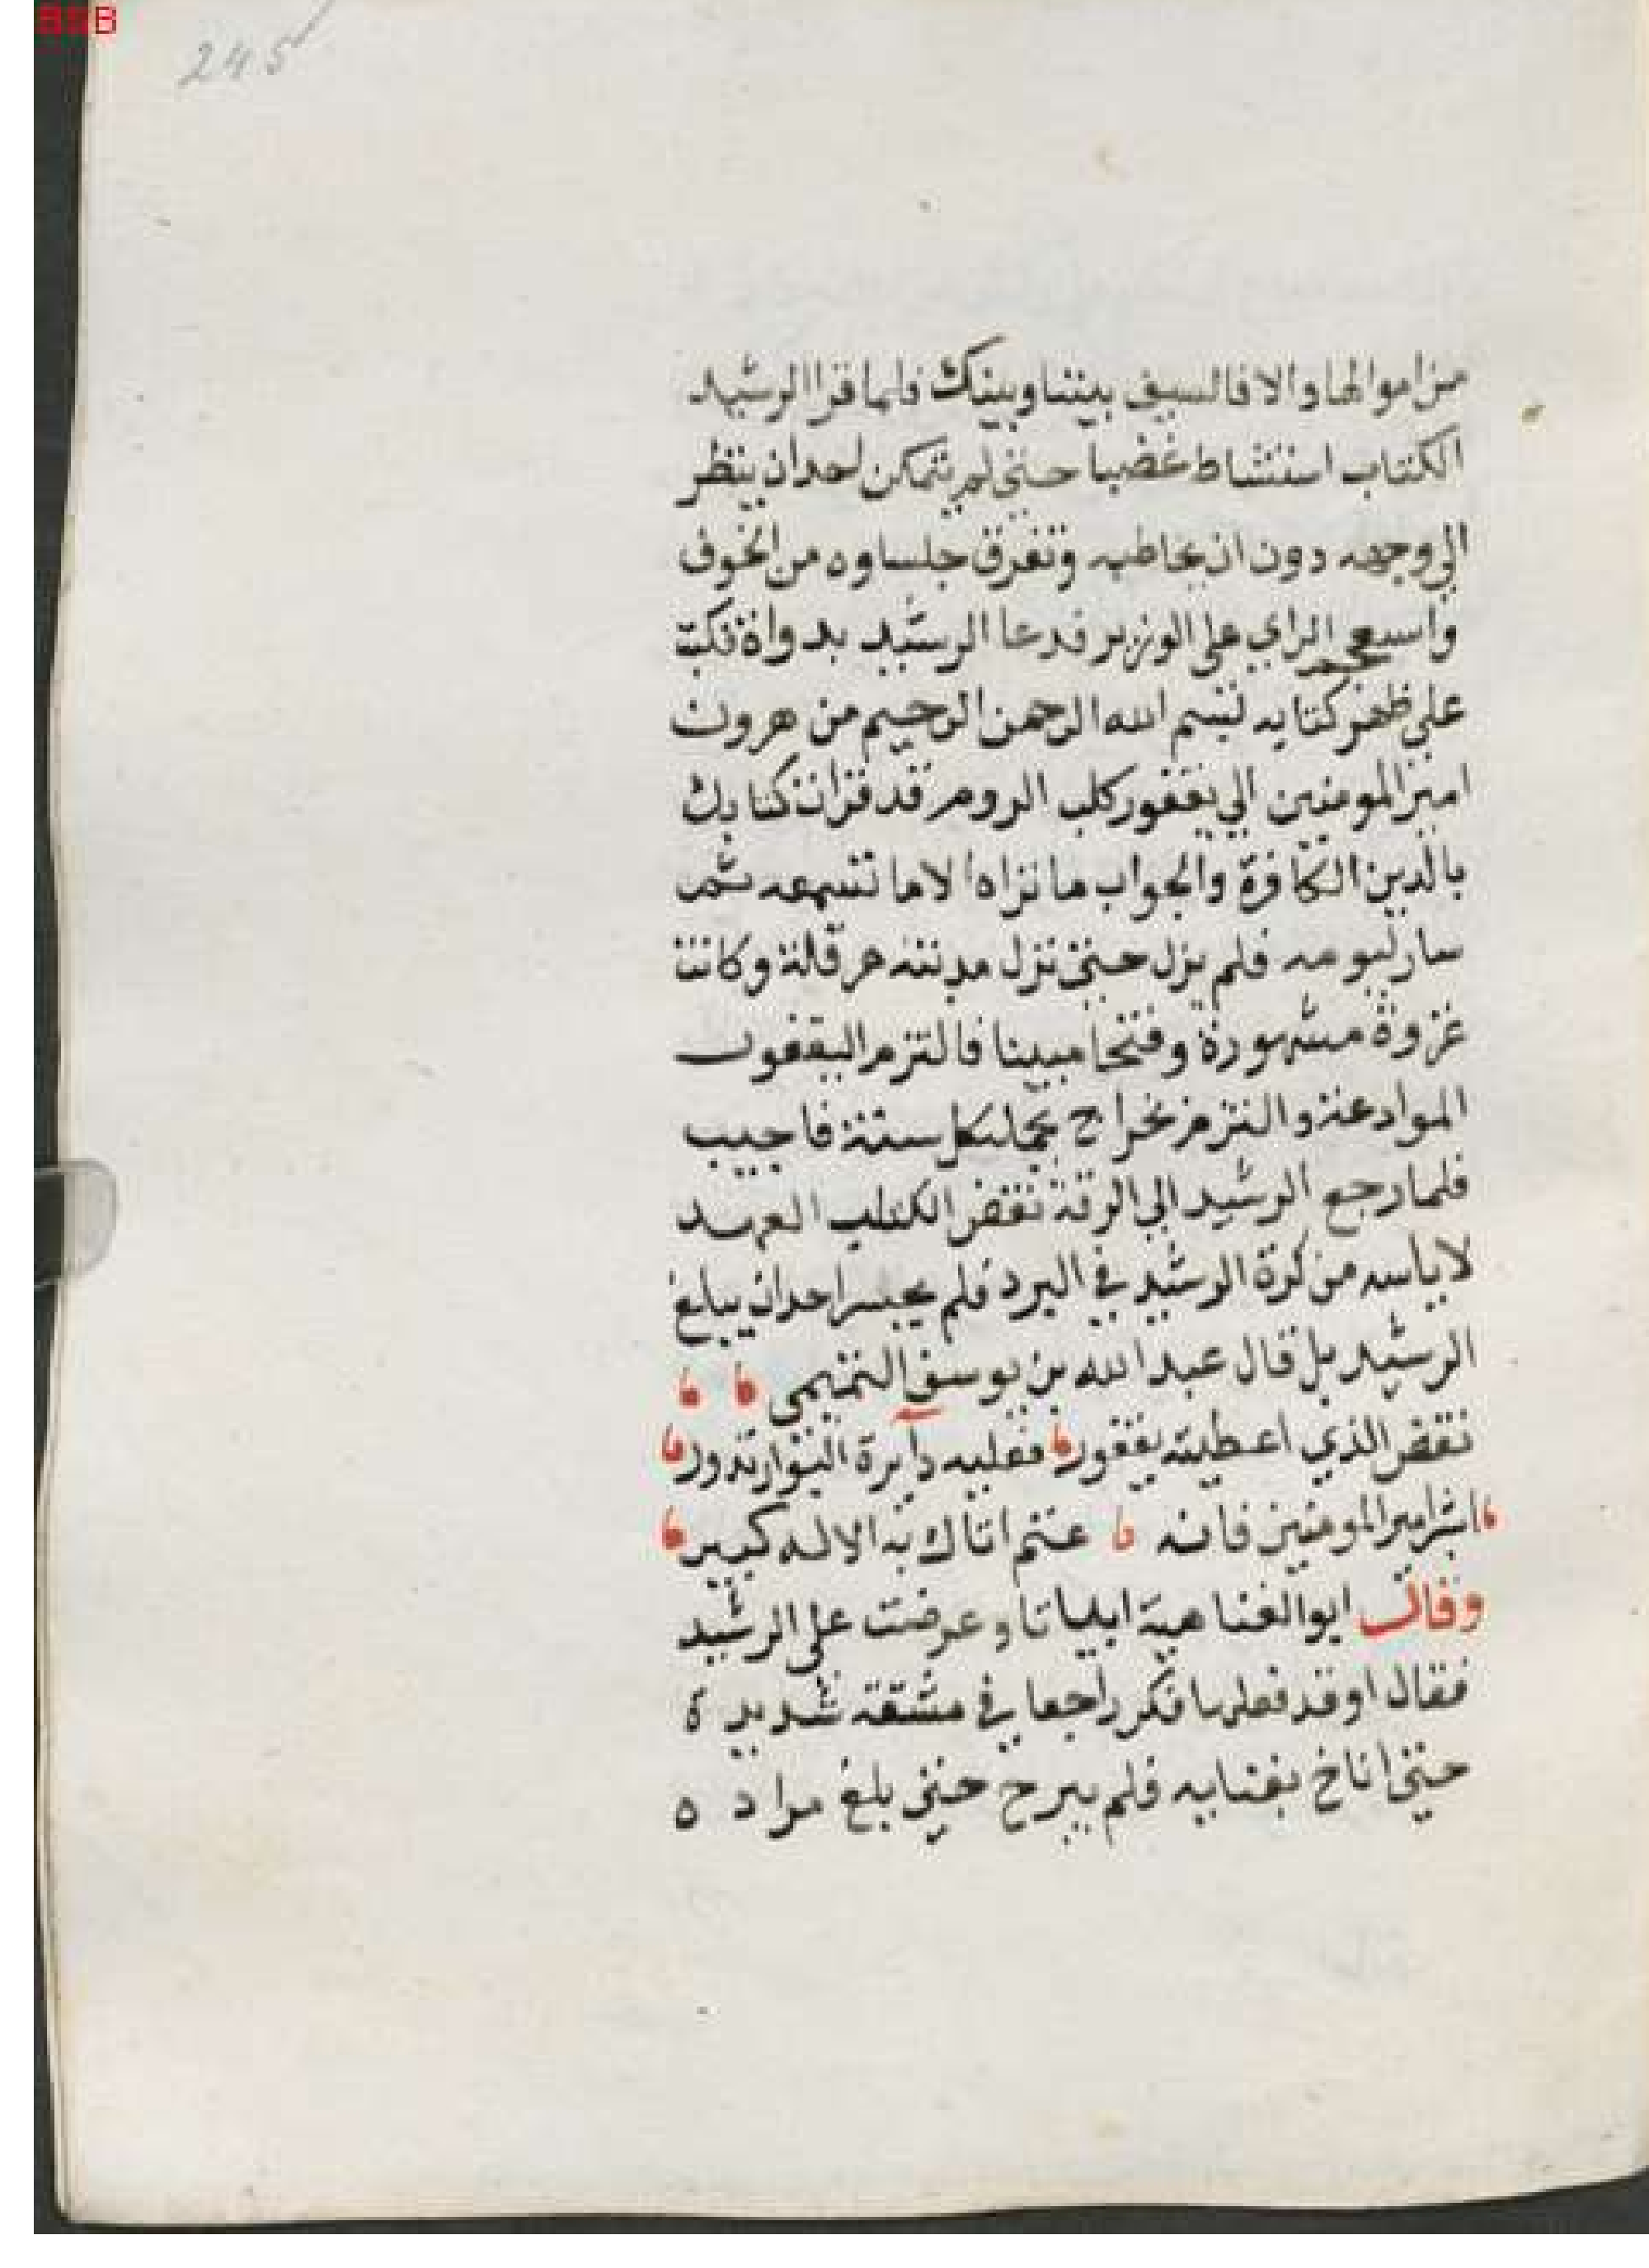 245
من اموالها والا فالسيف بيننا وبينك فلما قرا الرشيد
الكتاب استشاط غضبا حتي لم يتمكن لحدان ينظر
الي وجهه دون ان يخاطبه وتفرق جلساوه من الخوف
واستعجم الراي علي الوزير فدعا الرشيد بدواة فكتب
علي ظهر كتابه بسم الله الرحمن الرحيم من هرون
امير المومنين الي يقفور كلب الروم قد قرات كتابك
بالدين الكافرة والجواب ما تراه الا ما تسمعه ثم
سار ليومه فلم يزل حتي نزل مدينة هرقلة وكانت
غزوة مشهورة وفتحا مبينا فالتزم اليقفور
الموادعة والتزم بخراج يحمل كل سنة فاجيب
فلما رجع الرشيد الي الرقة نقض الكلب العهد
لاياسه من كرة الرشيد في البرد فلم يجسر احد ان يبلغ
الرشيد بل قال عبد الله بن يوسف التميمي
نقض الذي اعطيته يقفور فعليه دآيرة البوار تدور
ابشر امير المومنين فانه غنم اتاك به الاله كبير
وقال ابو العتاهية ابياتا وعرضت علي الرشيد
فقال اوقد فعلها فكر راجعا في مشقة شديدة
حتي اناخ بفنايه فلم يبرح حتي بلغ مراده